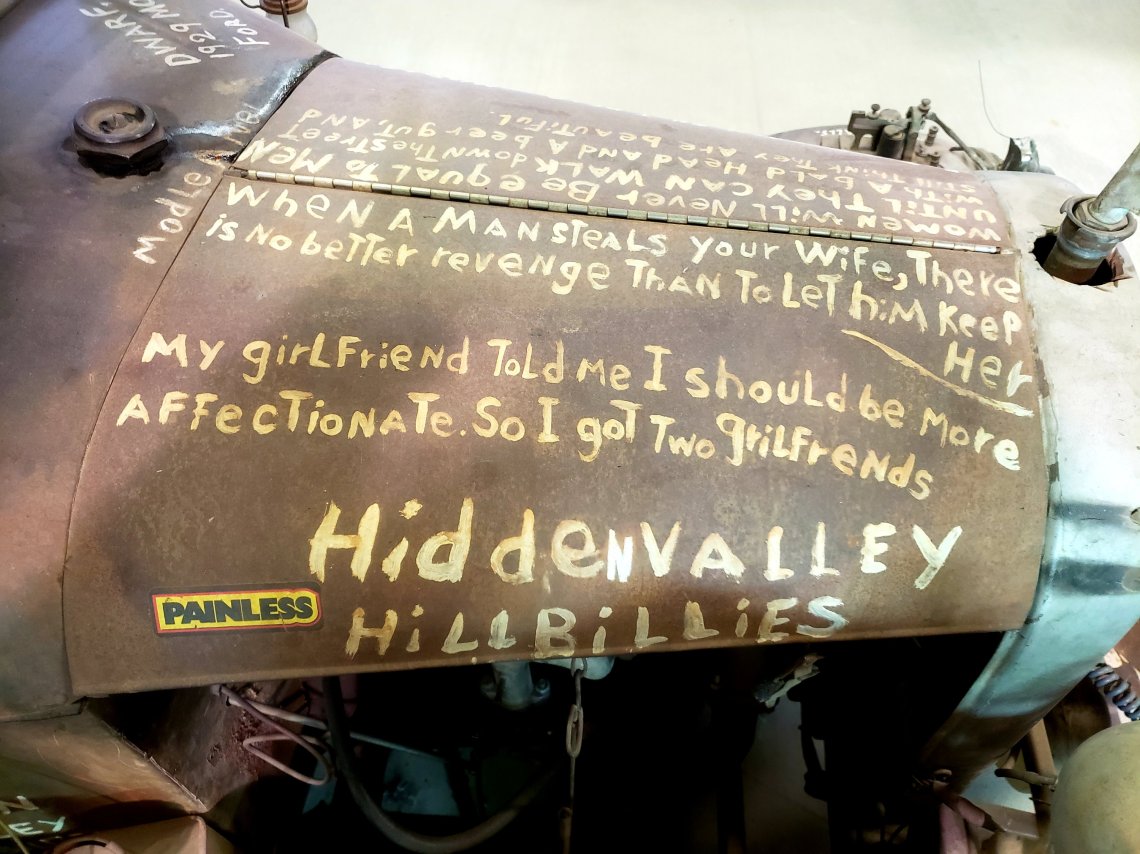 DWARF
1929 MO
FORD
WOMEN WiLL NeVer Be equAL To MEN
UNTiL THey CAN WALK down The STreeT
WiTH A bALd HeAd ANd A beer guT, ANd
STiLL THiNK THey ARe beAUTiFUL.
WheN A MAN STeALS your Wife, There
is No beTTer reveNge THAN To LeT hiM Keep
Her
My girLFrieNd ToLd Me I shouLd be More
AFFecTioNATe. So I goT Two griLFreNds
HiddeN VALLEY
HiLLBiLLiES
PAINLESS